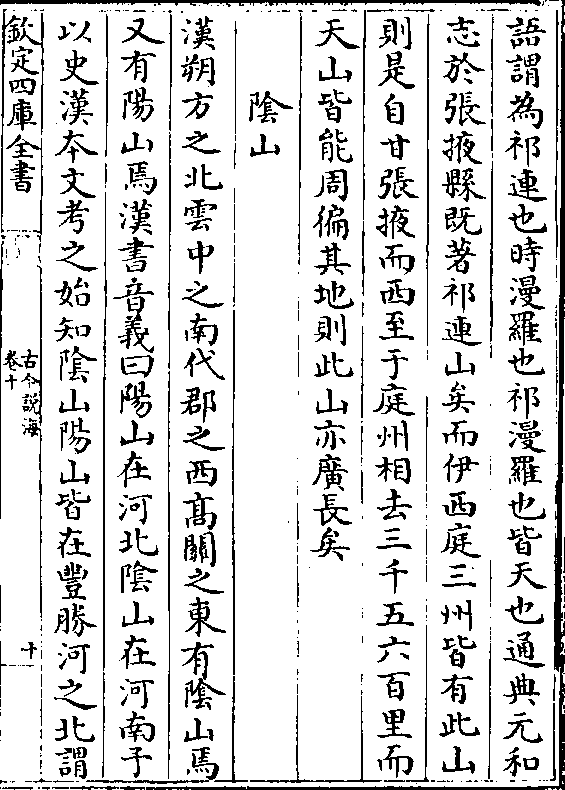 語謂為祁連也時漫羅也祁漫羅也皆天也通典元和
志於張掖縣既著祁連山矣而伊西庭三州皆有此山
則是自甘張掖而西至于庭州相去三千五六百里而
天山皆能周徧其地則此山亦廣長矣
陰山
漢朔方之北雲中之南代郡之西髙闕之東有陰山焉
又有陽山焉漢書音義曰陽山在河北陰山在河南予
以史漢本文考之始知陰山陽山皆在豐勝河之北謂
欽定四庫全書
古今說海
卷十
十